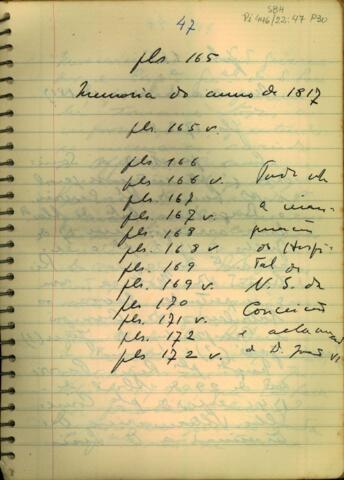 SBH
Pi 446/22: 47 P30
47
fls 165
Memoria do anno de 1817
fls 165 v.
fls 166
fls 166 v.
fls 167
fls 167 v.
fls 168
fls 168 v.
fls. 169
fls. 169 v.
fls 170
fls. 171 v.
fls. 172
fls 172 v.
Tudo
a inau-
guração
do Hospi-
tal de
N. S. da
Conceição
e aclamaç
de D. João VI